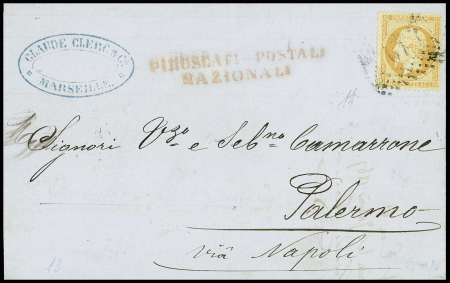 CLAUDE CLERC & Cie
MARSEILLE
PIROSCAFI POSTALI
NAZIONALI
Signori Vzo e Sebno Camarrone
Palermo
via Napoli
13